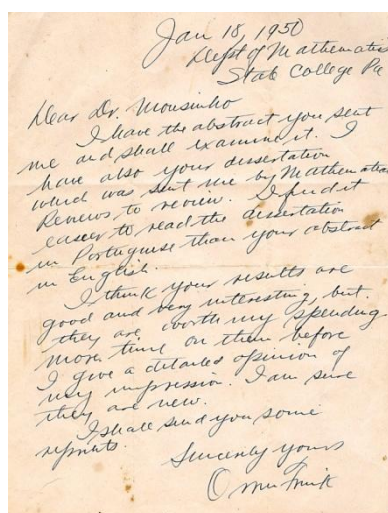 Jan 18, 1950
Dept of Mathematics
State College Pa
Dear Dr. Mousinho
I have the abstract you sent
me and shall examine it. I
have also your dissertation
which was sent me by Mathematical
Reviews to review. I find it
easier to read the dissertation
in Portuguese than your abstract
in English.
I think your results are
good and very interesting, but
they are worth my spending
more time on them before
I give a detailed opinion of
my impression. I am sure
they are new.
I shall send you some
reprints.
Sincerely yours
Orrin Frink